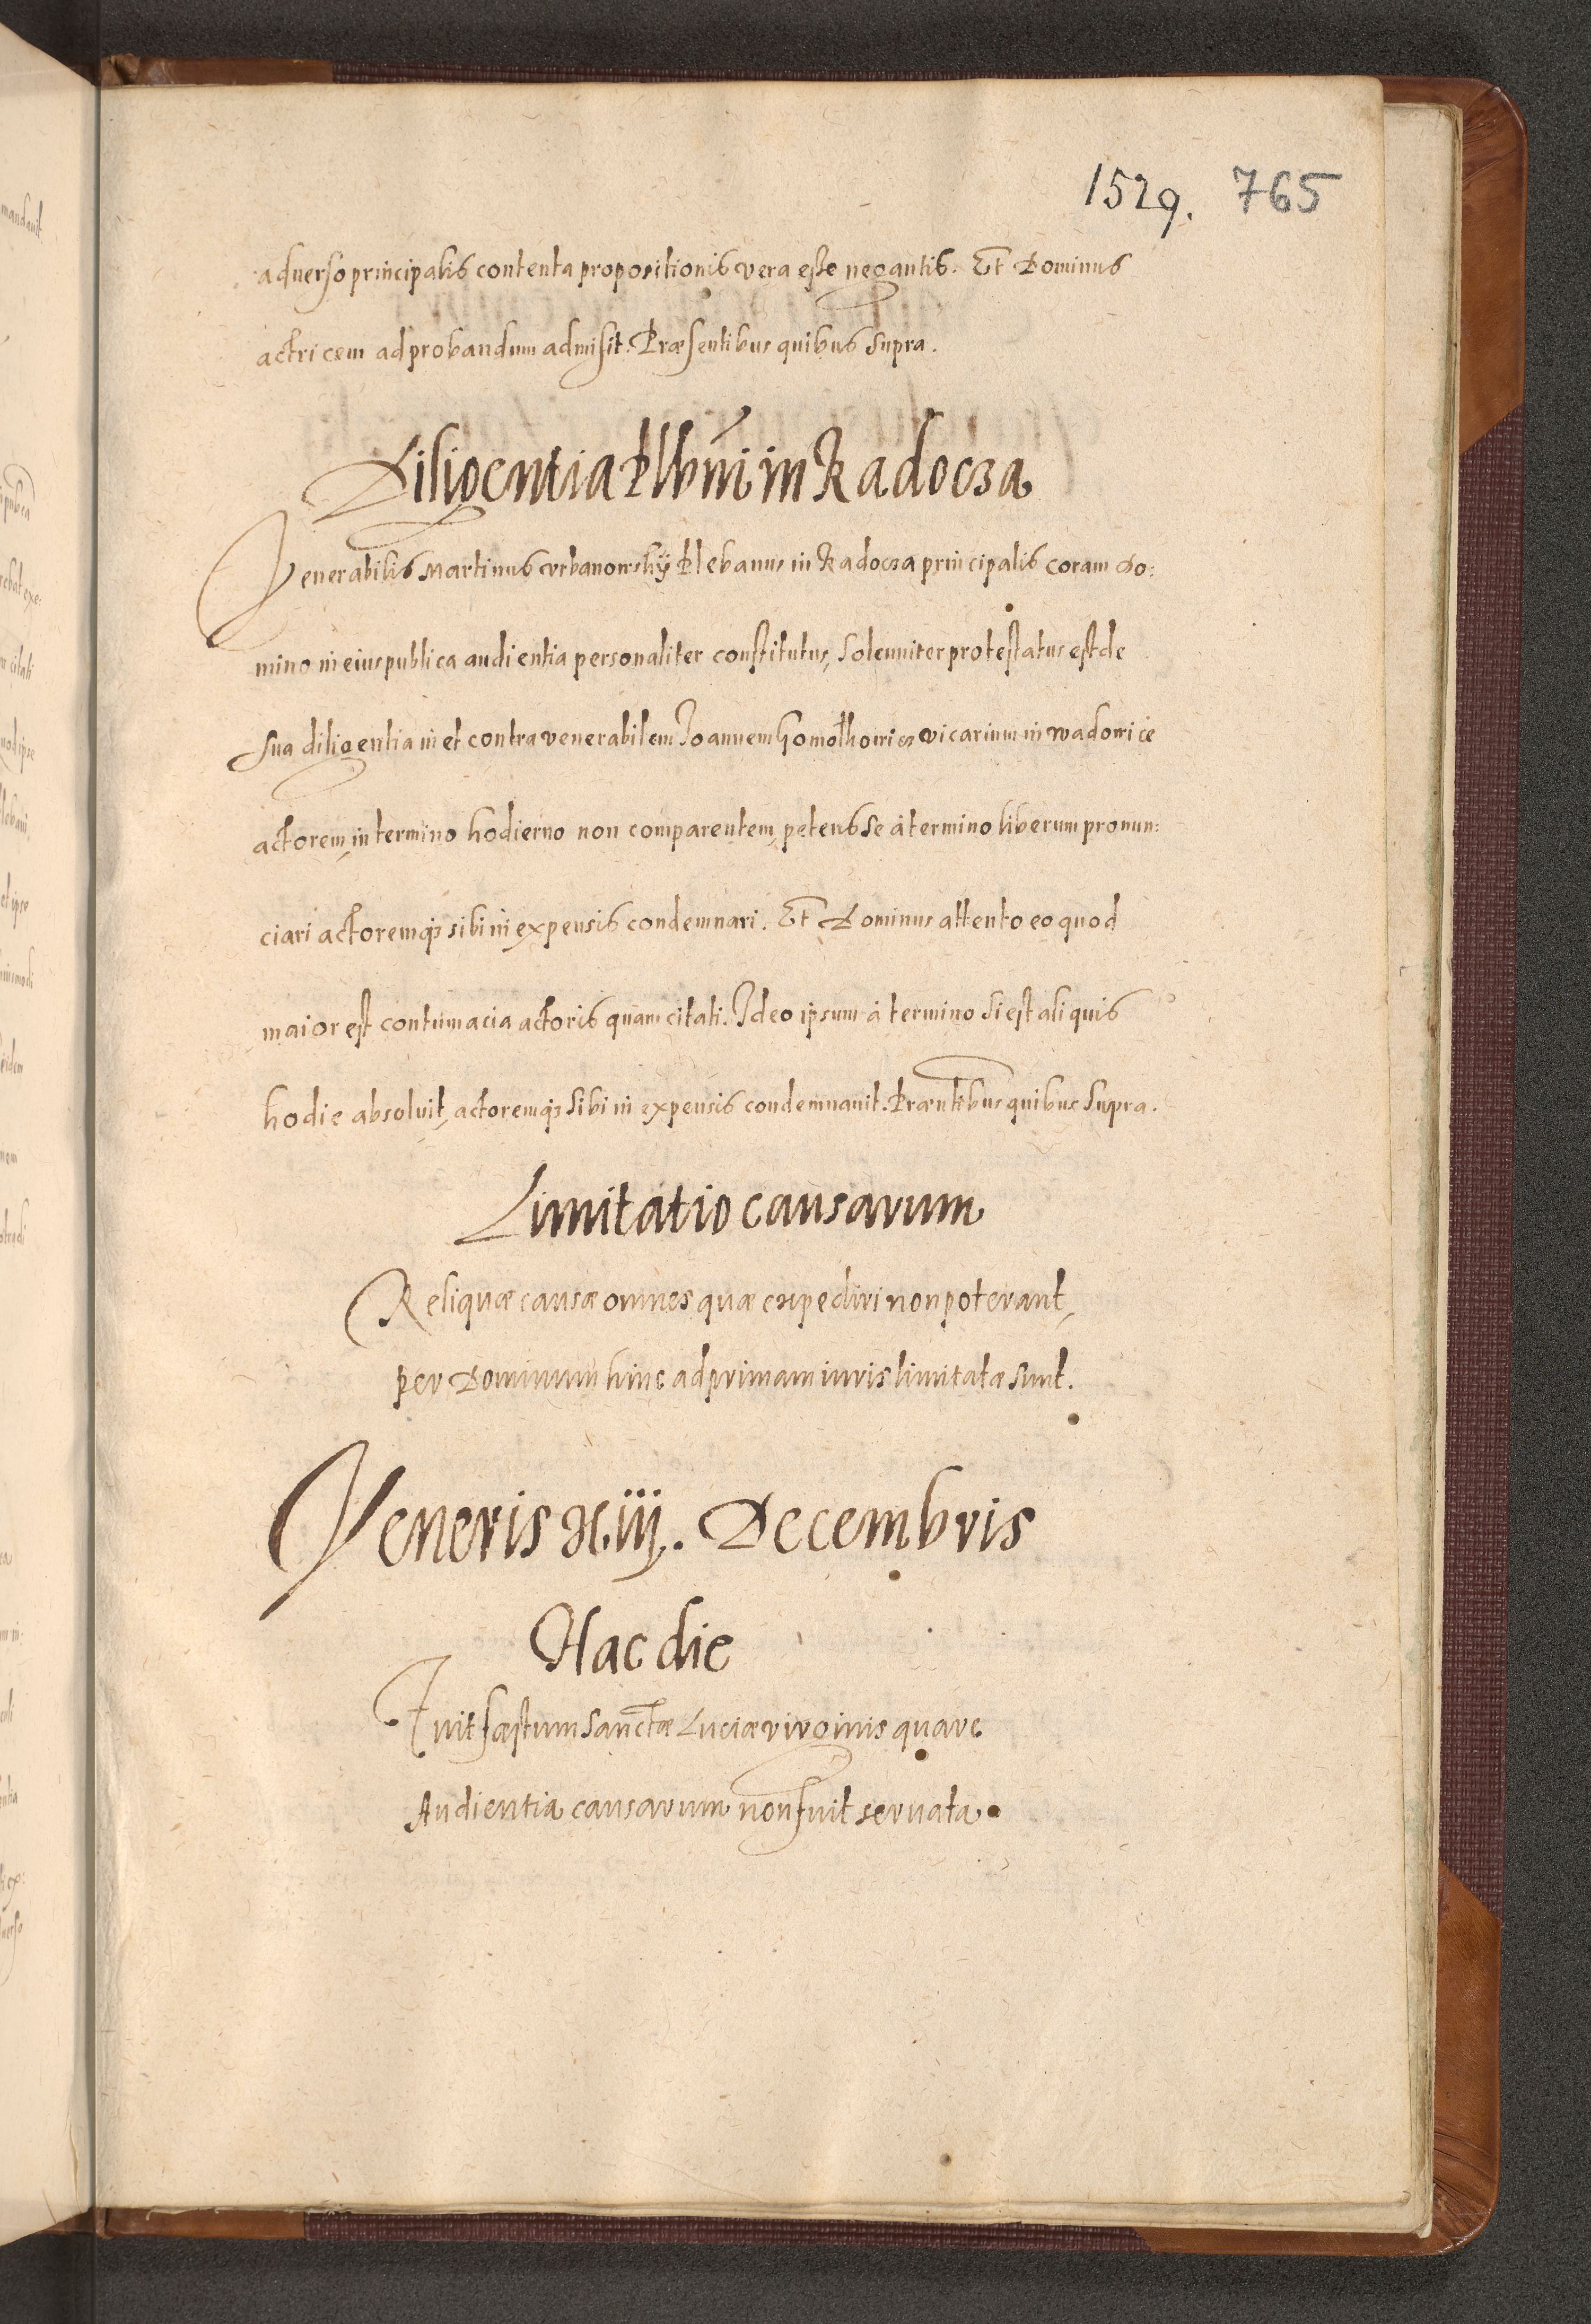 1529. 765
aduerso principalis contenta propositionis vera esse negantis. Et Dominus
actricem ad probandum admisit. Præsentibus quibus supra.
Diligentia Plbni in Radocza
Venerabilis Martinus Vrbanowskÿ Plebanus in Radocza principalis coram Do:
mino in eius publica audientia personaliter constitutus, solenniter protestatus est de
sua diligentia in et contra venerabilem Joannem vicarium in wadowice
actorem, in termino hodierno non comparentem, petens se à termino liberum pronun:
ciari actoremq3 sibi in expensis condemnari. Et Dominus attento eo quod
maior est contumacia actoris quam citati. Ideo ipsum à termino si est aliquis
hodie absoluit, actoremq3 sibi in expensis condemnauit. Præntibus quibus supra.
Limitatio causarum
Reliquæ causæ omnes quæ expediri non poterant,
per Dominum hinc ad primam iuris limitatæ sunt.
Veneris xiij. Decembris
Hac die
Fuit fæstum Sanctæ Luciæ virginis quare
Audientia causarum non fuit seruata.